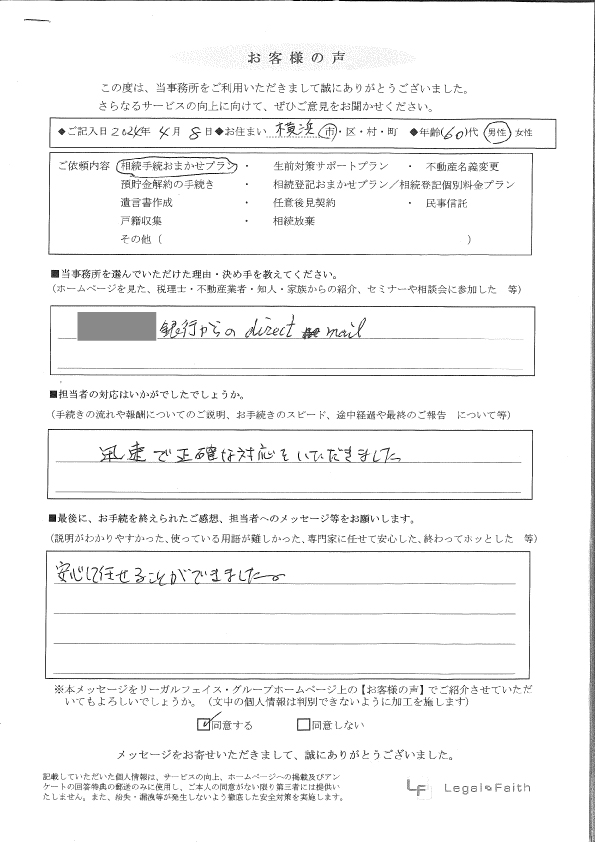 お客様の声
この度は、当事務所をご利用いただきまして誠にありがとうございました。
さらなるサービスの向上に向けて、ぜひご意見をお聞かせください。
◆ご記入日2024年 4月 8日◆お住まい 横浜 市・区・村・町 ◆年齢(60)代 男性 女性
ご依頼内容 相続手続おまかせプラン ・ 生前対策サポートプラン ・ 不動産名義変更
預貯金解約の手続き ・ 相続登記おまかせプラン/相続登記個別料金プラン
遺言書作成 ・ 任意後見契約 ・ 民事信託
戸籍収集 ・ 相続放棄
その他( )
■当事務所を選んでいただけた理由・決め手を教えてください。
(ホームページを見た、税理士・不動産業者・知人・家族からの紹介、セミナーや相談会に参加した 等)
銀行からの direct mail
■担当者の対応はいかがでしたでしょうか。
(手続きの流れや報酬についてのご説明、お手続きのスピード、途中経過や最終のご報告 について等)
迅速で正確な対応をいただきました
■最後に、お手続を終えられたご感想、担当者へのメッセージ等をお願いします。
(説明がわかりやすかった、使っている用語が難しかった、専門家に任せて安心した、終わってホッとした 等)
安心して任せることができました。
※本メッセージをリーガルフェイス・グループホームページ上の【お客様の声】でご紹介させていただ
いてもよろしいでしょうか。(文中の個人情報は判別できないように加工を施します)
☑同意する □同意しない
メッセージをお寄せいただきまして、誠にありがとうございました。
記載していただいた個人情報は、サービスの向上、ホームページへの掲載及びアン
ケートの回答特典の郵送のみに使用し、ご本人の同意がない限り第三者には提供い
たしません。また、紛失・漏洩等が発生しないよう徹底した安全対策を実施します。
LF Legal Faith